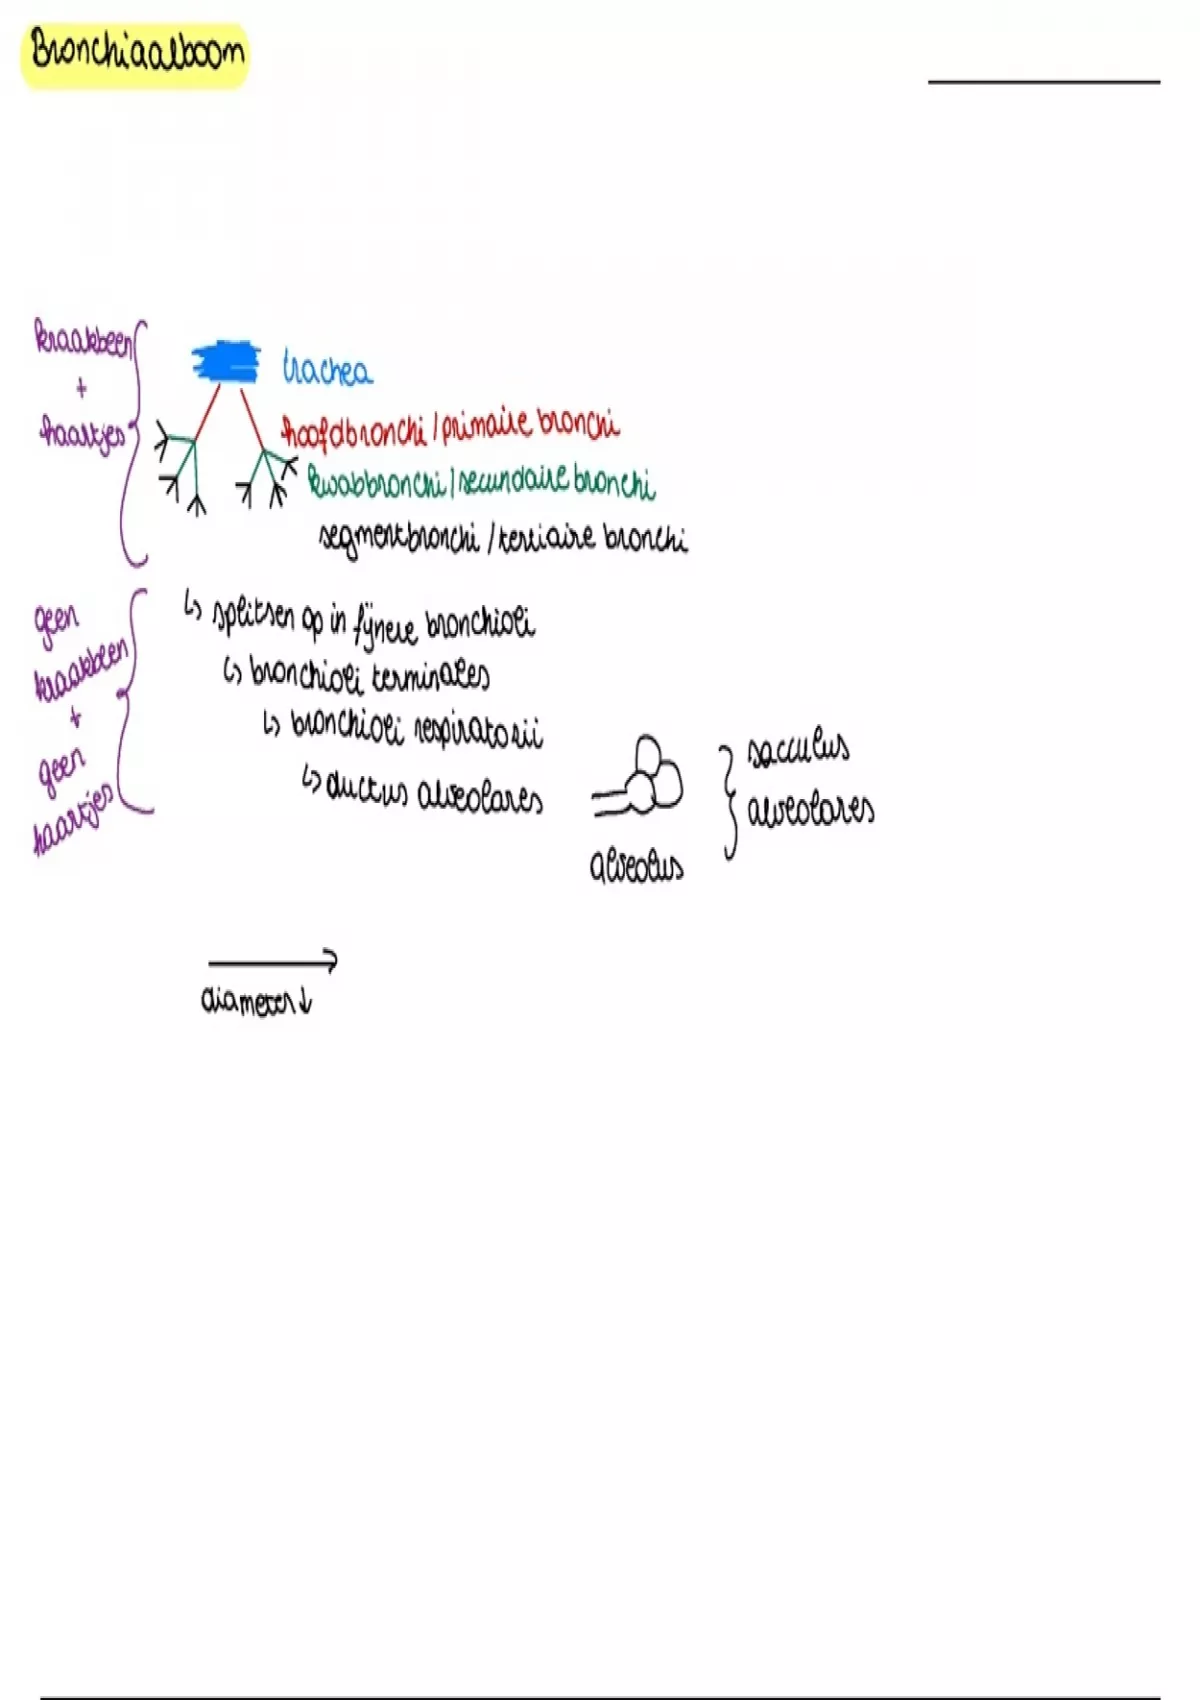 Bronchiaalboom
kraakbeen
+
haartjes
trachea
hoofdbronchi / primaire bronchi
kwabbronchi / secundaire bronchi
segmentbronchi / tertiaire bronchi
geen
kraakbeen
+
geen
haartjes
↳ splitsen op in fijnere bronchioli
↳ bronchioli terminales
↳ bronchioli respiratorii
↳ ductus alveolares
alveolus
sacculus
alveolares
diameter↓